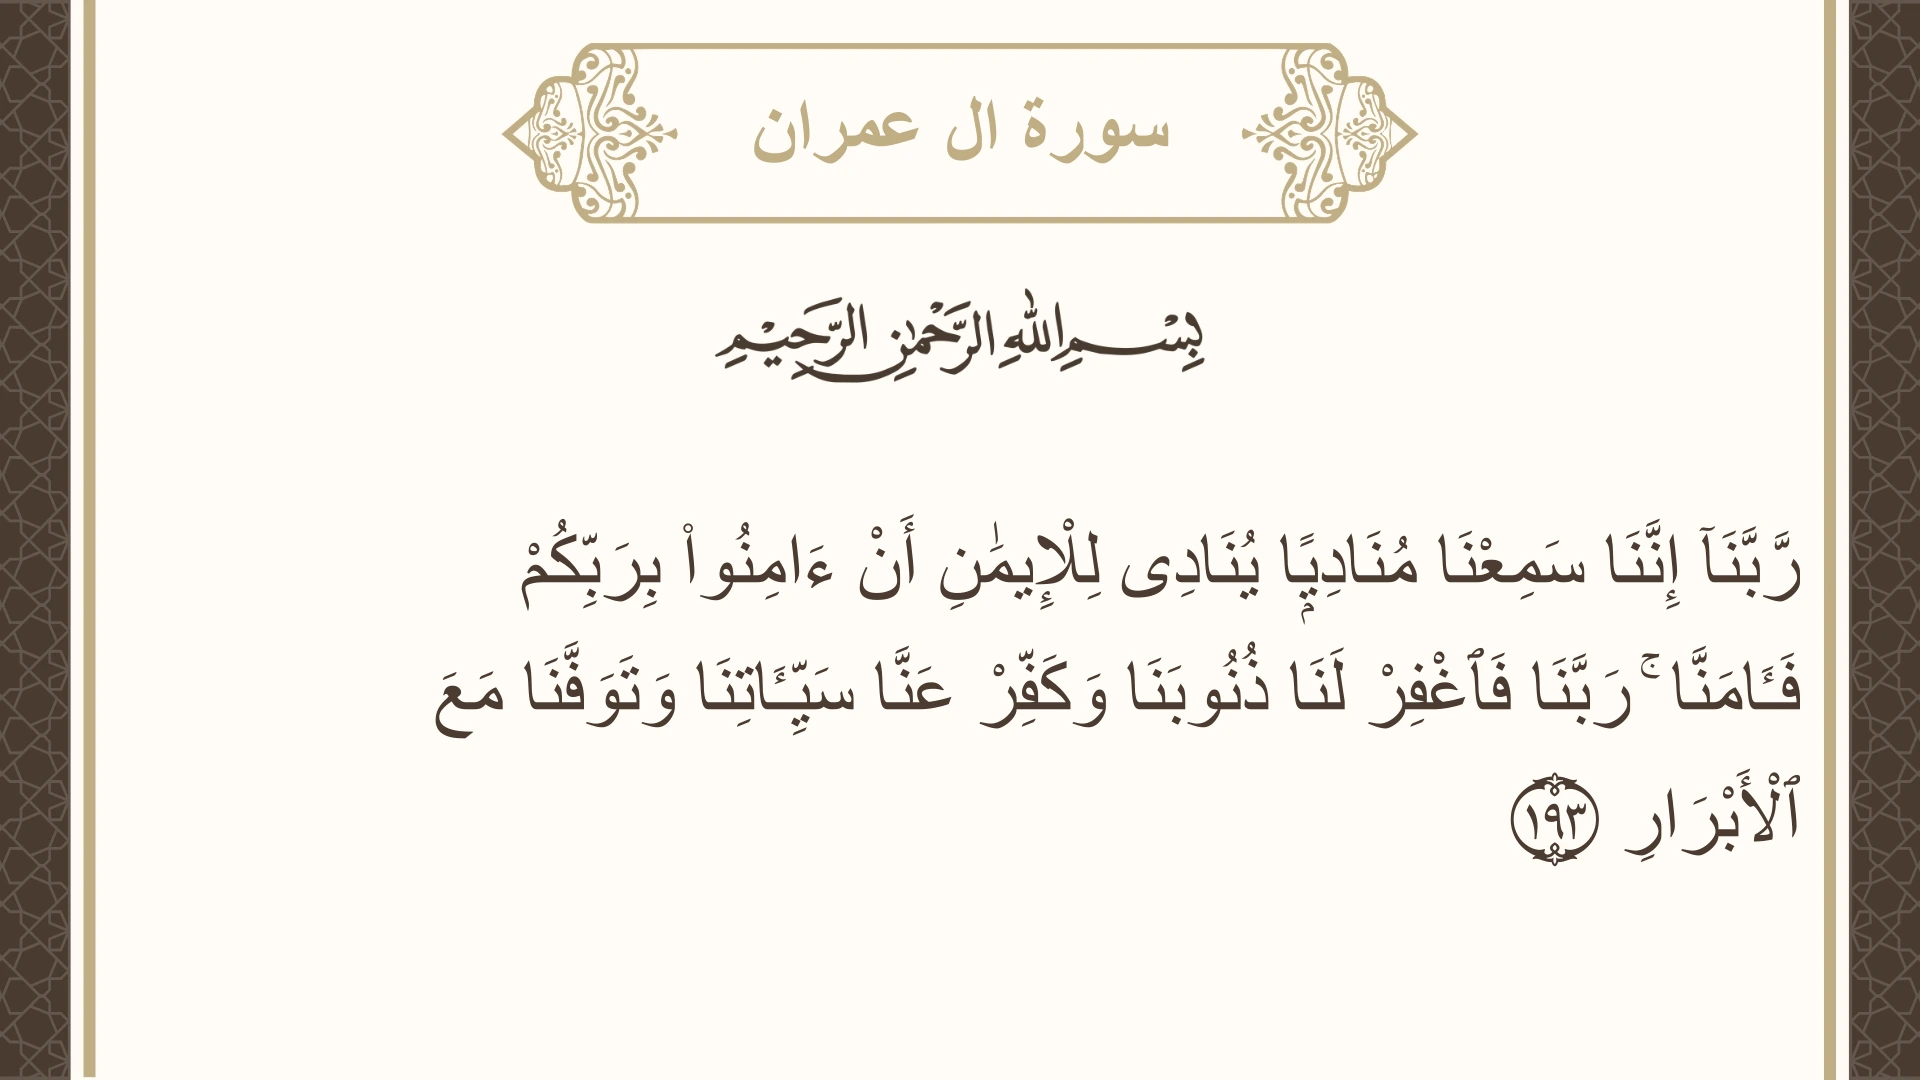 سورة ال عمران
بِسْمِ اللهِ الرَّحْمٰنِ الرَّحِيْمِ
رَّبَّنَآ إِنَّنَا سَمِعْنَا مُنَادِيًۭا يُنَادِى لِلْإِيمَٰنِ أَنْ ءَامِنُوا۟ بِرَبِّكُمْ
فَـَٔامَنَّا ۚ رَبَّنَا فَٱغْفِرْ لَنَا ذُنُوبَنَا وَكَفِّرْ عَنَّا سَيِّـَٔاتِنَا وَتَوَفَّنَا مَعَ
ٱلْأَبْرَارِ ١٩٣